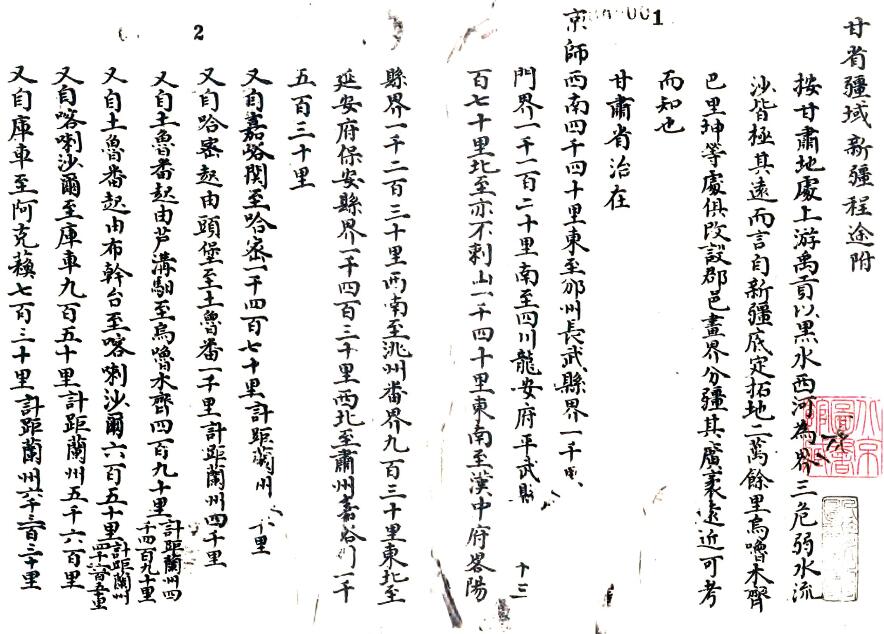 001
甘省疆域新疆程途附
按甘肅地處上游禹貢以黑水西河為界三危弱水流
沙皆極其遠而言自新疆底定拓地二萬餘里烏嚕木齊
巴里坤等處俱改設郡邑畫界分疆其廣袤遠近可考
而知也
甘肅省治在
京師西南四千四十里東至邠州長武縣界一千
門界一千一百二十里南至四川龍安府平武
百七十里北至亦不剌山一千四十里東南至漢中府畧陽
2
縣界一千二百三十里西南至洮州番界九百三十里東北至
延安府保安縣界一千四百三十里西北至肅州嘉峪一千
五百三十里
又自嘉峪関至哈密一千四百七十里計距蘭州 千里
又自哈密起由頭堡至土魯番一千里計距蘭州四千里
又自土魯番起由芦溝驲至烏嚕木齊四百九十里計距蘭州四千四百九十里
又自土魯番起由布幹台至喀喇沙爾六百五十里計距蘭州四千六百五十里
又自喀喇沙爾至庫車九百五十里計距蘭州五千六百里
又自庫車至阿克蘓七百三十里計距蘭州六千三百三十里